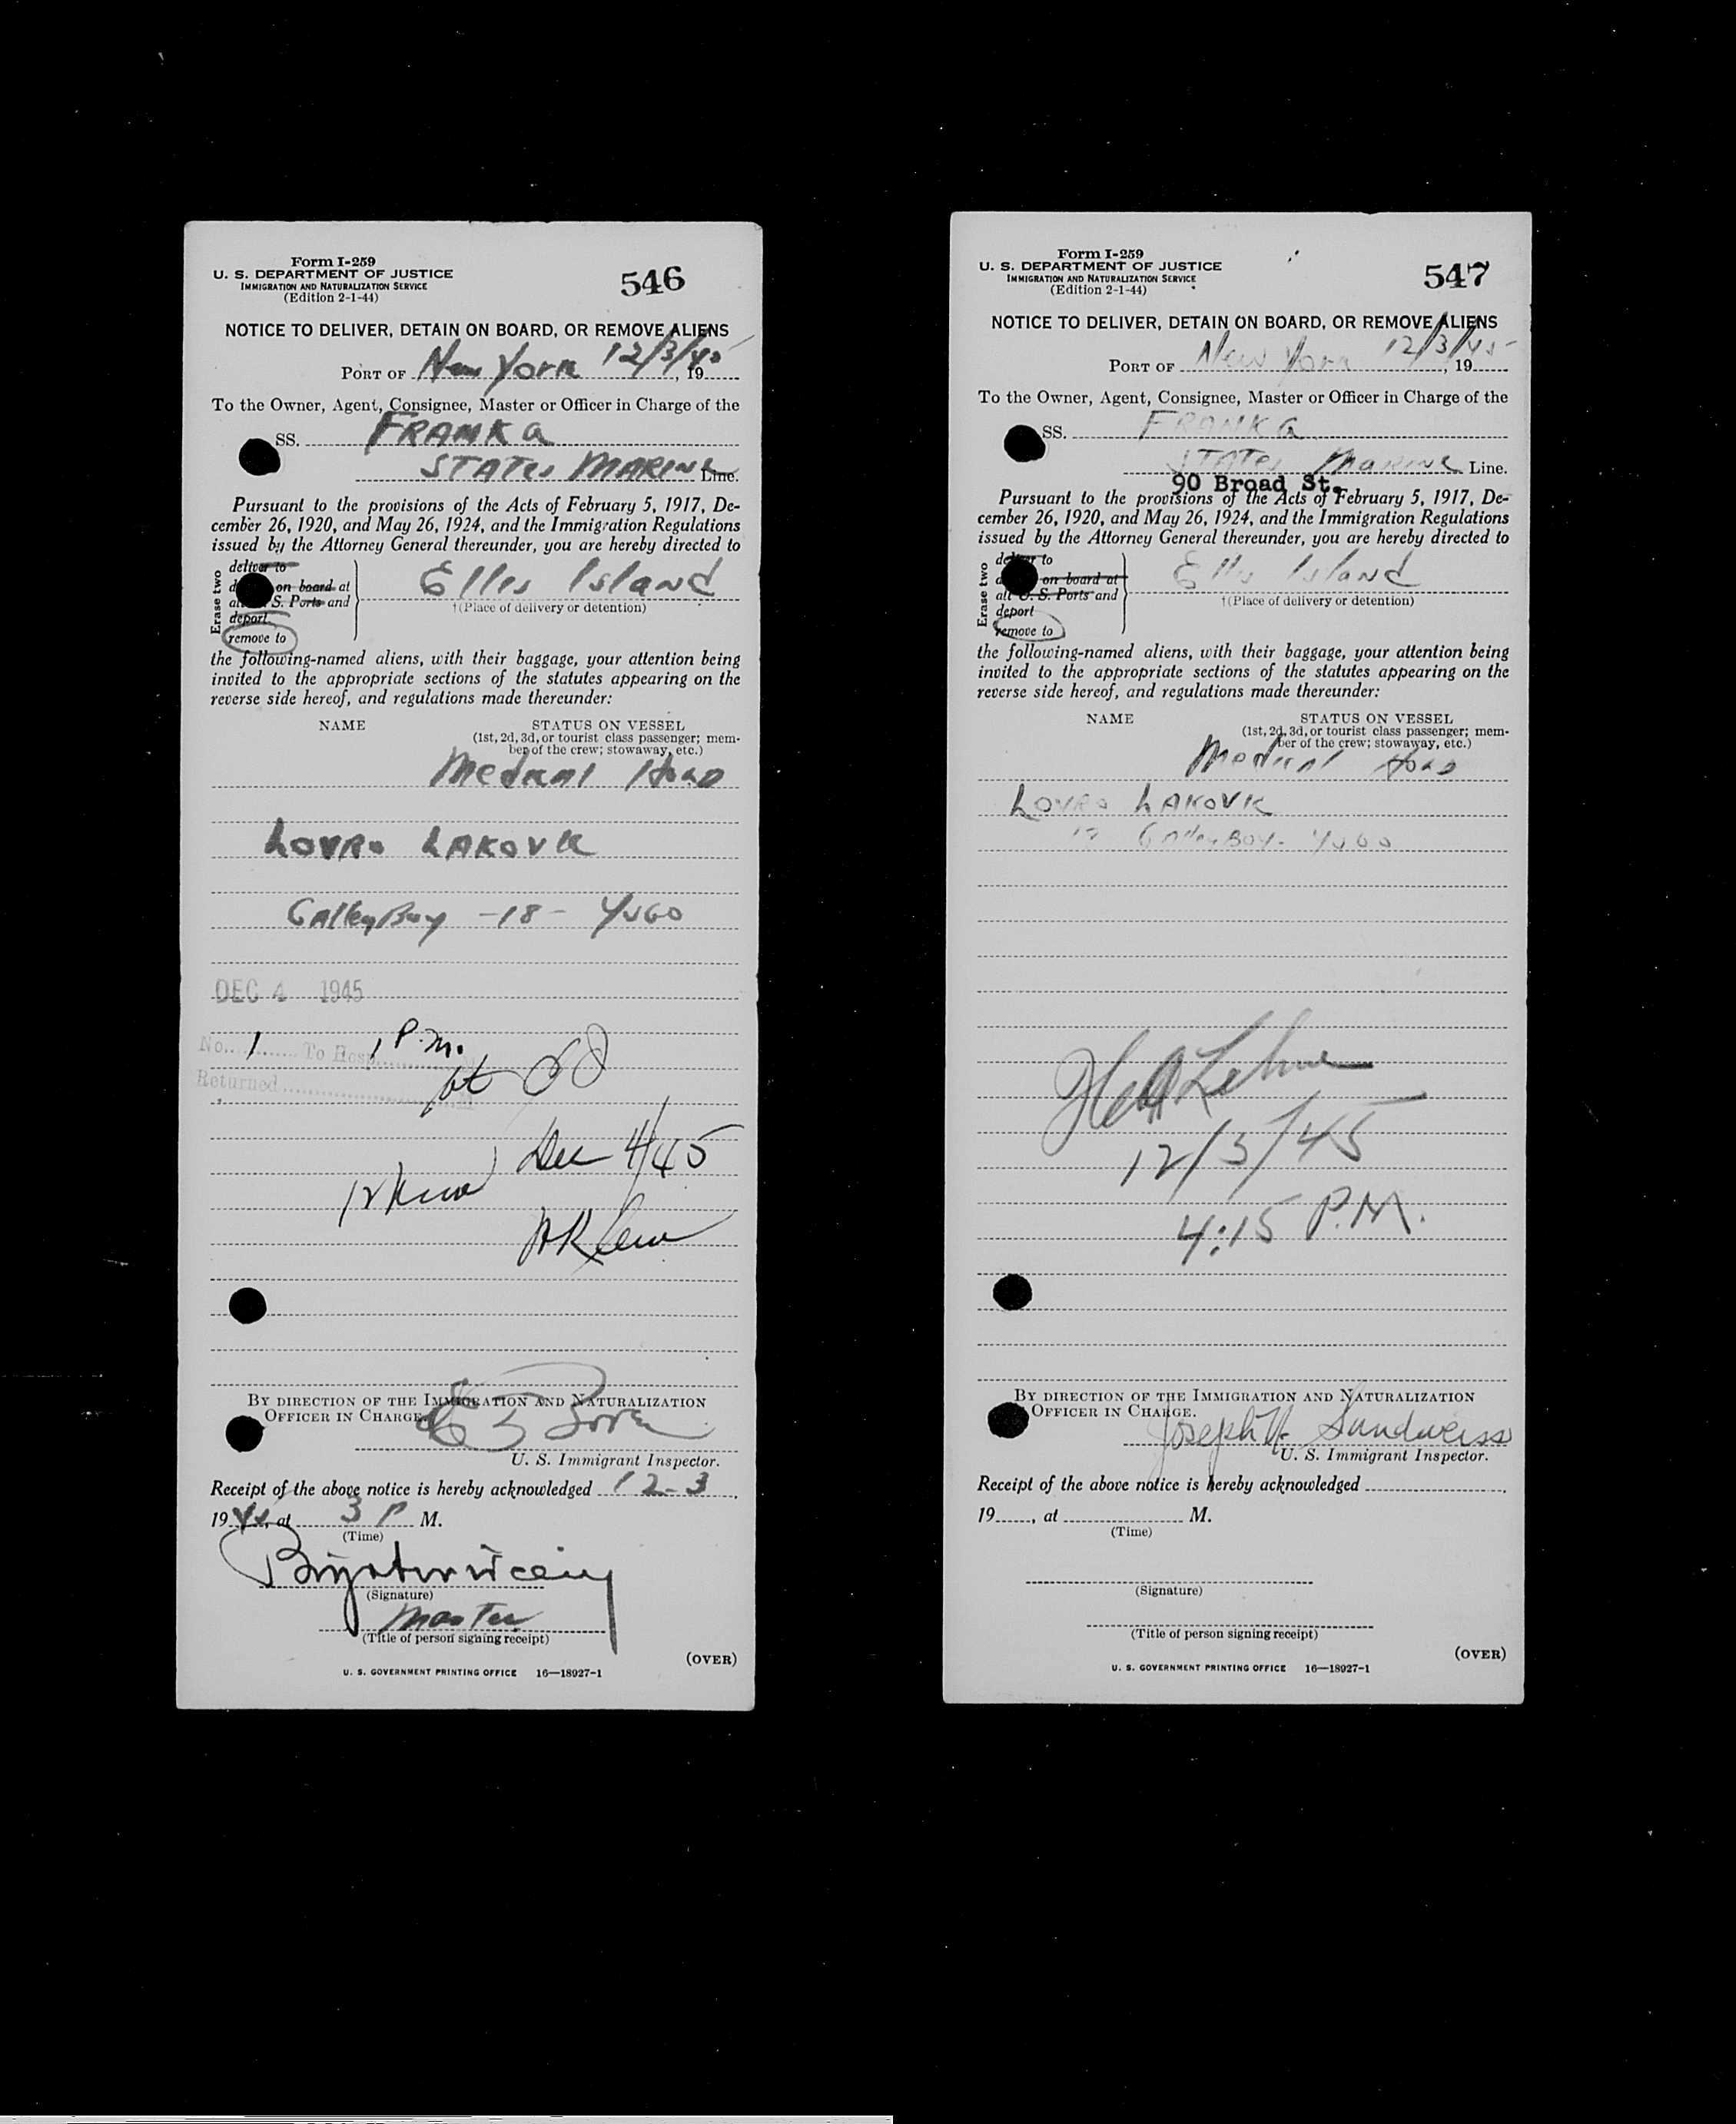 Form I-259
U. S. DEPARTMENT OF JUSTICE
IMMIGRATION AND NATURALIZATION SERVICE
(Edition 2-1-44)
546
NOTICE TO DELIVER, DETAIN ON BOARD, OR REMOVE ALIENS
PORT OF New York 12/3/45, 19
To the Owner, Agent, Consignee, Master or Officer in Charge of the
SS. FRANKA
STATES MARINE Line.
Pursuant to the provisions of the Acts of February 5, 1917, De-
cember 26, 1920, and May 26, 1924, and the Immigration Regulations
issued by the Attorney General thereunder, you are hereby directed to
Erase two
deliver to
on board at
S. Ports and
deport
remove to
Ellis Island
†(Place of delivery or detention)
the following-named aliens, with their baggage, your attention being
invited to the appropriate sections of the statutes appearing on the
reverse side hereof, and regulations made thereunder:
NAME STATUS ON VESSEL
(1st, 2d, 3d, or tourist class passenger; mem-
ber of the crew; stowaway, etc.)
Medical
LOVRO LAKOVIC
Galley Boy - 18 - YUGO
DEC 4 1945
No. 1 To Hosp. 1 P.M.
Returned
Dec 4/45
BY DIRECTION OF THE IMMIGRATION AND NATURALIZATION
OFFICER IN CHARGE.
U. S. Immigrant Inspector.
Receipt of the above notice is hereby acknowledged 12-3,
1945, at 3 P M.
(Time)
(Signature)
Master
(Title of person signing receipt)
(OVER)
U. S. GOVERNMENT PRINTING OFFICE 16—18927-1
Form I-259
U. S. DEPARTMENT OF JUSTICE
IMMIGRATION AND NATURALIZATION SERVICE
(Edition 2-1-44)
547
NOTICE TO DELIVER, DETAIN ON BOARD, OR REMOVE ALIENS
PORT OF New York 12/3/45, 19
To the Owner, Agent, Consignee, Master or Officer in Charge of the
SS. FRANKA
STATES MARINE Line.
90 Broad St.
Pursuant to the provisions of the Acts of February 5, 1917, De-
cember 26, 1920, and May 26, 1924, and the Immigration Regulations
issued by the Attorney General thereunder, you are hereby directed to
Erase two
deliver to
on board at
all U. S. Ports and
deport
remove to
Ellis Island
†(Place of delivery or detention)
the following-named aliens, with their baggage, your attention being
invited to the appropriate sections of the statutes appearing on the
reverse side hereof, and regulations made thereunder:
NAME STATUS ON VESSEL
(1st, 2d, 3d, or tourist class passenger; mem-
ber of the crew; stowaway, etc.)
Medical
LOVRO LAKOVIC
Galley Boy - YUGO
12/3/45
4:15 P.M.
BY DIRECTION OF THE IMMIGRATION AND NATURALIZATION
OFFICER IN CHARGE.
Joseph H. Sandweiss
U. S. Immigrant Inspector.
Receipt of the above notice is hereby acknowledged
19, at M.
(Time)
(Signature)
(Title of person signing receipt)
(OVER)
U. S. GOVERNMENT PRINTING OFFICE 16—18927-1